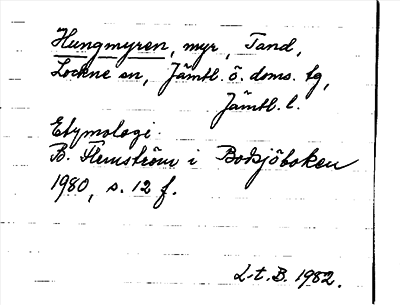 Hungmyren, myr, Tand,
Lockne sn, Jämtl. ö. doms. tg,
Jämtl. l.
Etymologi:
B. Flemström i Bodsjöboken
1980, s. 12 f.
L-t. B. 1982.